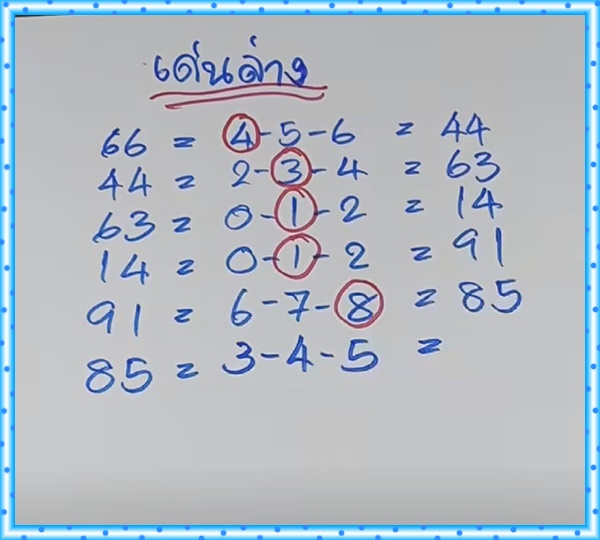 เด่นล่าง
66 = 4-5-6 = 44
44 = 2-3-4 = 63
63 = 0-1-2 = 14
14 = 0-1-2 = 91
91 = 6-7-8 = 85
85 = 3-4-5 =